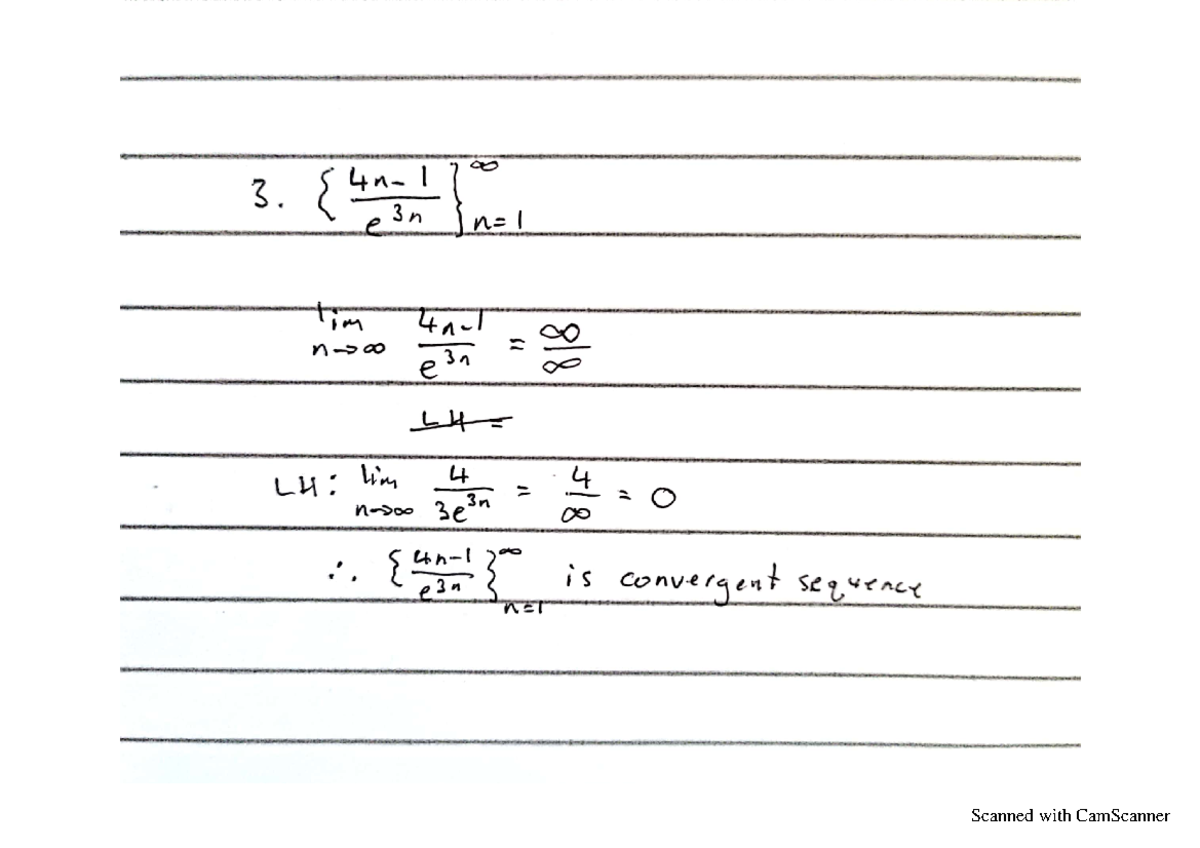 3. { 4n-1 / e^3n }^∞ n=1
lim n→∞ 4n-1 / e^3n = ∞ / ∞
LH =
LH: lim n→∞ 4 / 3e^3n = 4 / ∞ = 0
∴ { 4n-1 / e^3n }^∞ n=1 is convergent sequence
Scanned with CamScanner